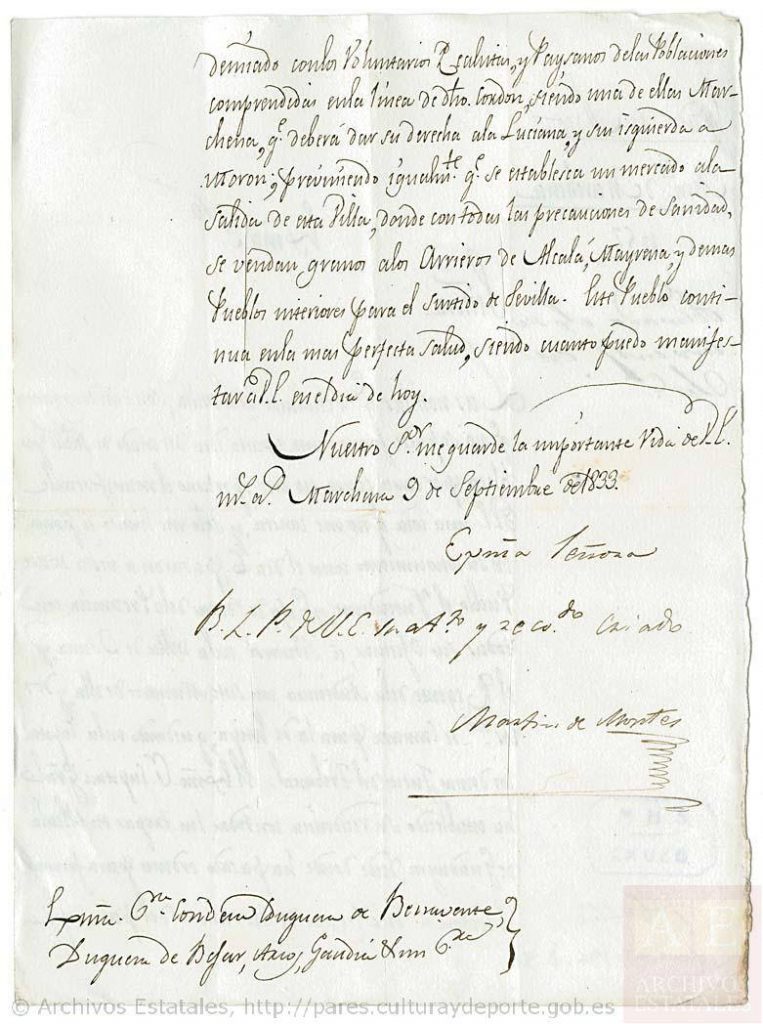 demiado con los Voluntarios Realistas, y Paysanos delas Poblaciones
comprendidas enla línea de dho. Cordon, siendo una de ellas Mar-
chena, q.e deberá dar su derecha ala Luciana, y su izquierda a
Moron; previniendo igualm.te q.e se establesca un mercado ala
Salida de esta Villa, donde con todas las precauciones de Sanidad,
se vendan granos alos Arrieros de Alcalá, Mayrena, y demas
Pueblos interiores para el surtido de Sevilla. Este Pueblo conti-
nua enla mas perfecta salud, siendo cuanto puedo manifes-
tar á V.E. enel dia de hoy.
Nuestro S.or me guarde la importante Vida de V.E.
m.s a.s Marchena 9 de Septiembre de 1833.
Exma Señora
B. L. P. de V. E. su at.to y reco.do Criado
Martin de Montes
Exma. S.ra Condesa Duquesa de Benavente,
Duquesa de Bejar, Arcos, Gandia & mi S.ra
© Archivos Estatales, http://pares.culturaydeporte.gob.es
AE
ARCHIVO
ESTATALES